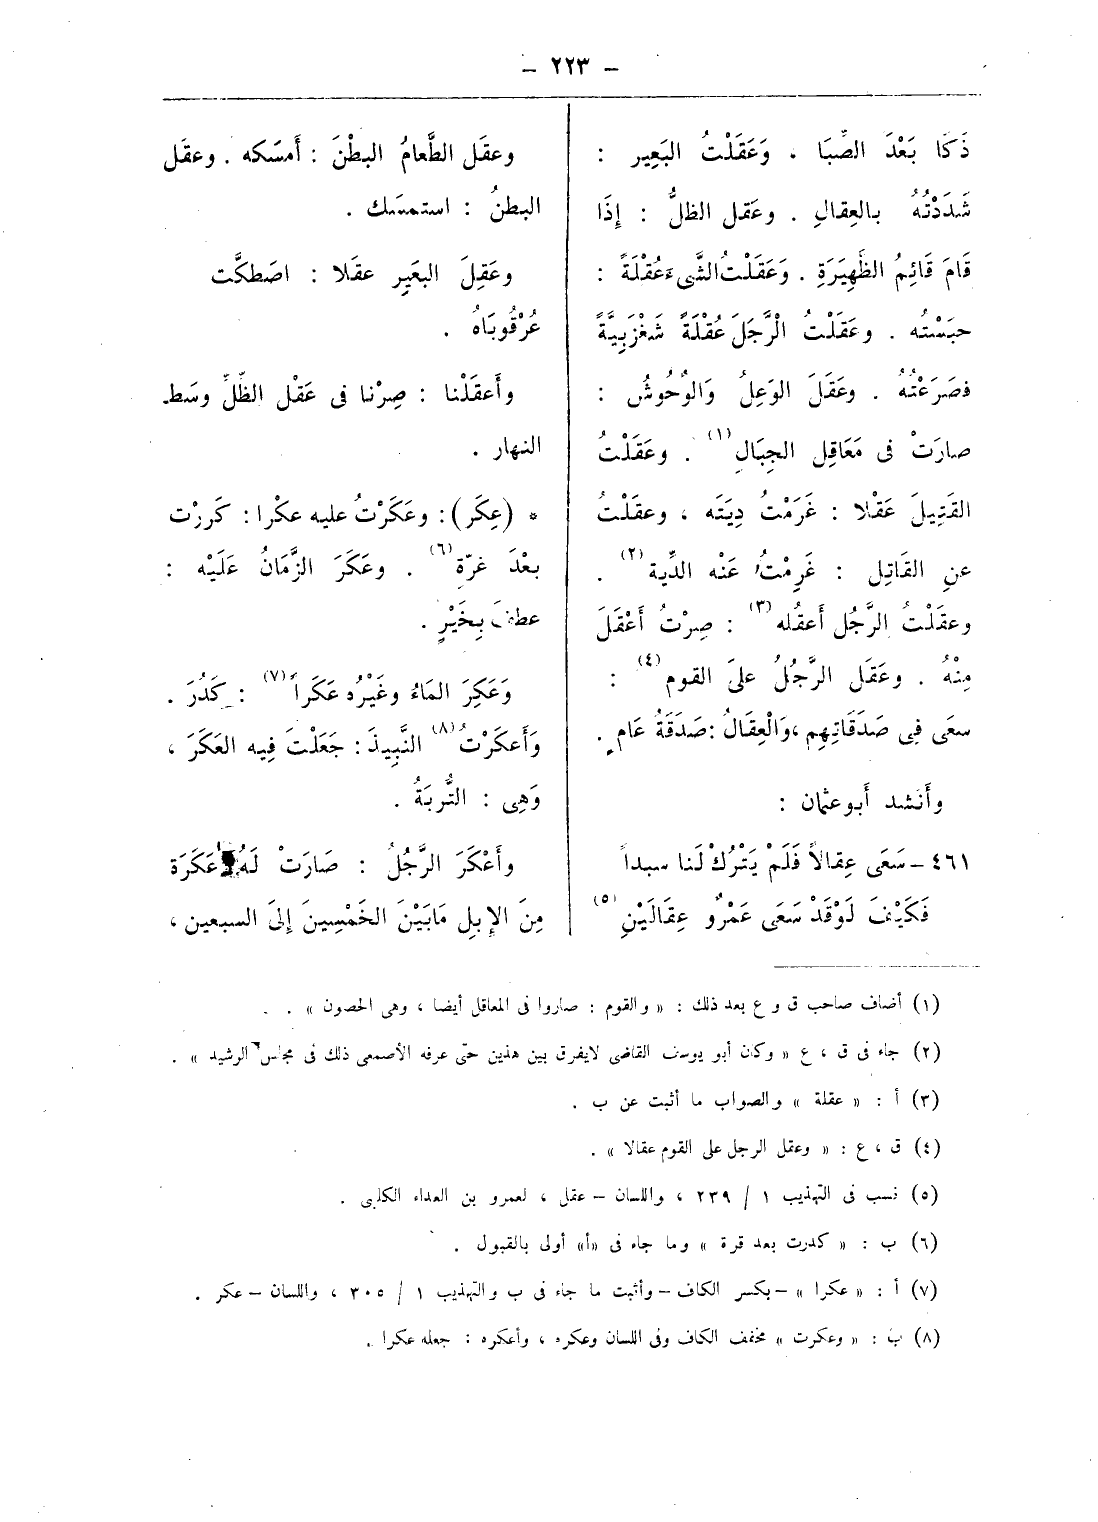 – ٢٢٣ –
ذَكَا بَعْدَ الصِّبَا . وَعَقَلْتُ البَعِير :
شَدَدْتُهُ بالعِقالِ . وعَقل الظلُّ : إِذَا
قَامَ قَائِمُ الظَّهِيَرَةِ . وَعَقَلْتُ الشَّىءَ عُقْلَةً :
حبَسْتُه . وعَقَلْتُ الْرَّجَلَ عُقْلَةً شَغْزَبِيَّةً
فصَرَعْتُهُ . وعَقَلَ الوَعِلُ وَالوُحُوشُ :
صارَتْ فى مَعَاقِل الجِبَالِ (١) . وعَقَلْتُ
القَتِيلَ عَقْلا : غَرَمْتُ دِيَتَه ، وعقَلْتُ
عنِ القَاتِل : غَرِمْتُ عَنْه الدِّية (٢) .
وعقَلْتُ الرَّجُل أَعقُله (٣) : صِرْتُ أَعْقَلَ
مِنْهُ . وعَقَل الرَّجُلُ علىَ القوم (٤) :
سعَى فِى صَدَقَاتِهِم ، وَالْعِقَالُ : صَدَقَةُ عَامٍ .
وأَنشد أَبو عثمان :
٤٦١ – سَعَى عِقالاً فَلَمْ يَتْرُكْ لَنا سبداً
فَكَيْفَ لَوْقَدْ سَعَى عَمْرٌو عِقَالَيْنِ (٥)
وعقَل الطَّعامُ البطْنَ : أَمسَكه . وعقَل
البطنُ : استمسَك .
وعَقِلَ البعَيرِ عقَلا : اصَطكَّت
عُرْقُوبَاهُ .
وأَعقَلْنا : صِرْنا فى عَقْل الظِّلِّ وسَط
النهار .
* (عِكَر) : وعَكَرْتُ عليه عكْرا : كَررْت
بعْدَ غرّةٍ (٦) . وعَكَرَ الزَّمَانُ عَلَيْه :
عطفَ بِخَيْرٍ .
وَعَكِرَ المَاءُ وغَيْرُه عَكَراً (٧) : كَدُرَ .
وَأَعكَرْتُ (٨) النَّبِيذَ : جَعَلْتَ فِيه العَكَرَ ،
وَهِى : التُّربَةُ .
وأَعْكَرَ الرَّجُلُ : صَارَتْ لَهُ عَكَرَة
مِنَ الإِبلِ مَابَيْنَ الخَمْسِينَ إِلىَ السبعين ،
(١) أضاف صاحب ق و ع بعد ذلك : « والقوم : صاروا فى المعاقل أيضا ، وهى الحصون » .
(٢) جاء فى ق ، ع « وكان أبو يوسف القاضى لايفرق بين هذين حتى عرفه الأصمعى ذلك فى مجلس الرشيد » .
(٣) أ : « عقلة » والصواب ما أثبت عن ب .
(٤) ق ، ع : « وعقل الرجل على القوم عقالا » .
(٥) نسب فى التهذيب ١ / ٢٣٩ ، واللسان – عقل ، لعمرو بن العداء الكلبى .
(٦) ب : « كدرت بعد قرة » وما جاء فى «أ» أولى بالقبول .
(٧) أ : « عكرا » – بكسر الكاف – وأثبت ما جاء فى ب والتهذيب ١ / ٣٠٥ ، واللسان – عكر .
(٨) ب : « وعكرت » مخفف الكاف وفى اللسان وعكره ، وأعكره : جعله عكرا .